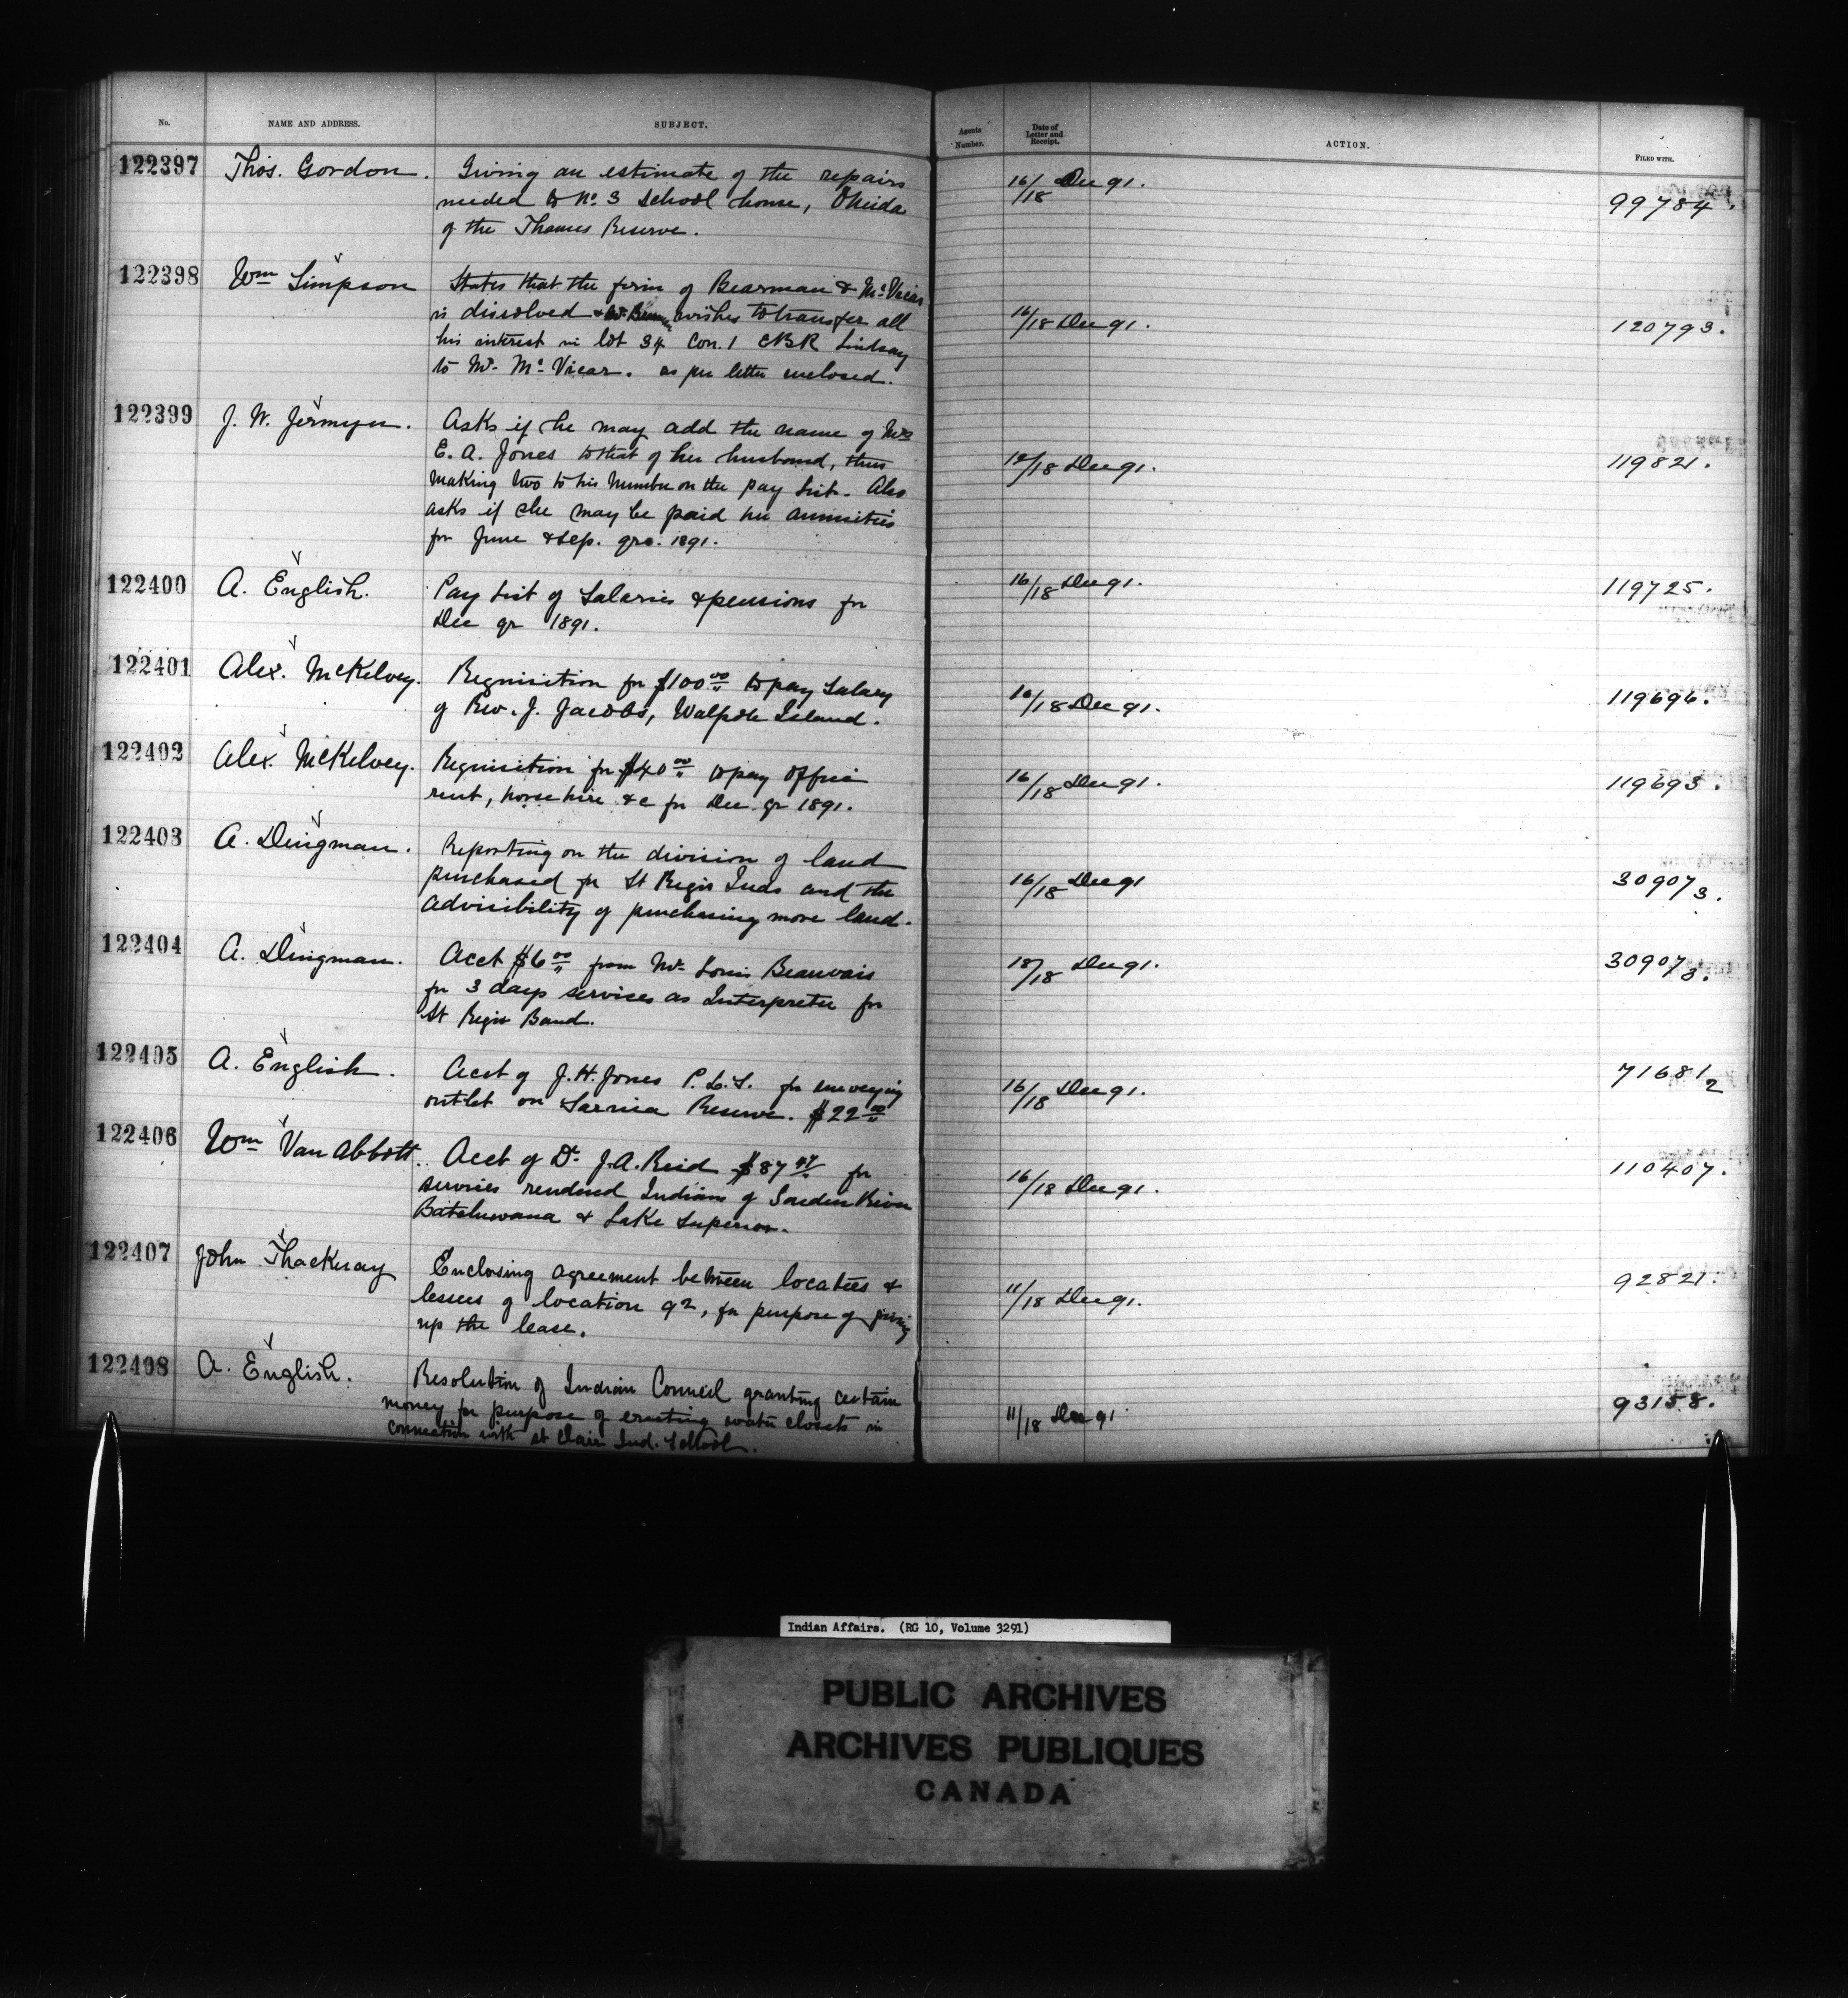 No. NAME AND ADDRESS. SUBJECT. Agents Number. Date of Letter and Receipt. ACTION. FILED WITH.
122397 Thos. Gordon. Giving an estimate of the repairs 16/18 Dec 91. 99784.
needed to No. 3 School house, Oneida
of the Thames Reserve.
122398 Wm Simpson States that the firm of Bearman & McVicar
is dissolved & wishes to transfer all 16/18 Dec 91. 120793.
his interest in lot 34 Con. 1 EBR Lindsay
to Mr. McVicar. as per letter enclosed.
122399 J. W. Jermyn. Asks if he may add the name of Mrs
E. A. Jones to that of her husband, thus /18 Dec 91. 119821.
making two to his number on the pay list. Also
asks if she may be paid her annuities
for June & Sep. qrs. 1891.
122400 A. English. Pay list of Salaries & pensions for 16/18 Dec 91. 119725.
Dec qr 1891.
122401 Alex. McKelvey. Requisition for $100.00 to pay Salary 16/18 Dec 91. 119696.
of Rev. J. Jacobs, Walpole Island.
122402 Alex. McKelvey. Requisition for $40.00 to pay office 16/18 Dec 91. 119693.
rent, horse hire &c for Dec. qr 1891.
122403 A. Dingman. Reporting on the division of land
purchased for St Regis Inds and the 16/18 Dec 91 30907/3.
advisibility of purchasing more land.
122404 A. Dingman. Acct $6.00 from Mr. Louis Beauvais 18/18 Dec 91. 30907/3.
for 3 days services as Interpreter for
St Regis Band.
122405 A. English. Acct of J. H. Jones P. L. S. for surveying 16/18 Dec 91. 71681/2
outlet on Sarnia Reserve. $22.00
122406 Wm Van Abbott. Acct of Dr. J. A. Reid $87.47 for 110407.
services rendered Indians of Garden River 16/18 Dec 91.
Batchewana & Lake Superior.
122407 John Thackeray Enclosing agreement between locatees & 92821.
lessees of location 92, for purpose of giving 11/18 Dec 91.
up the lease.
122408 A. English. Resolution of Indian Council granting certain 93158.
money for purpose of erecting water closets in 11/18 Dec 91.
connection with St Clair Ind. School.
Indian Affairs. (RG 10, Volume 3291)
PUBLIC ARCHIVES
ARCHIVES PUBLIQUES
CANADA